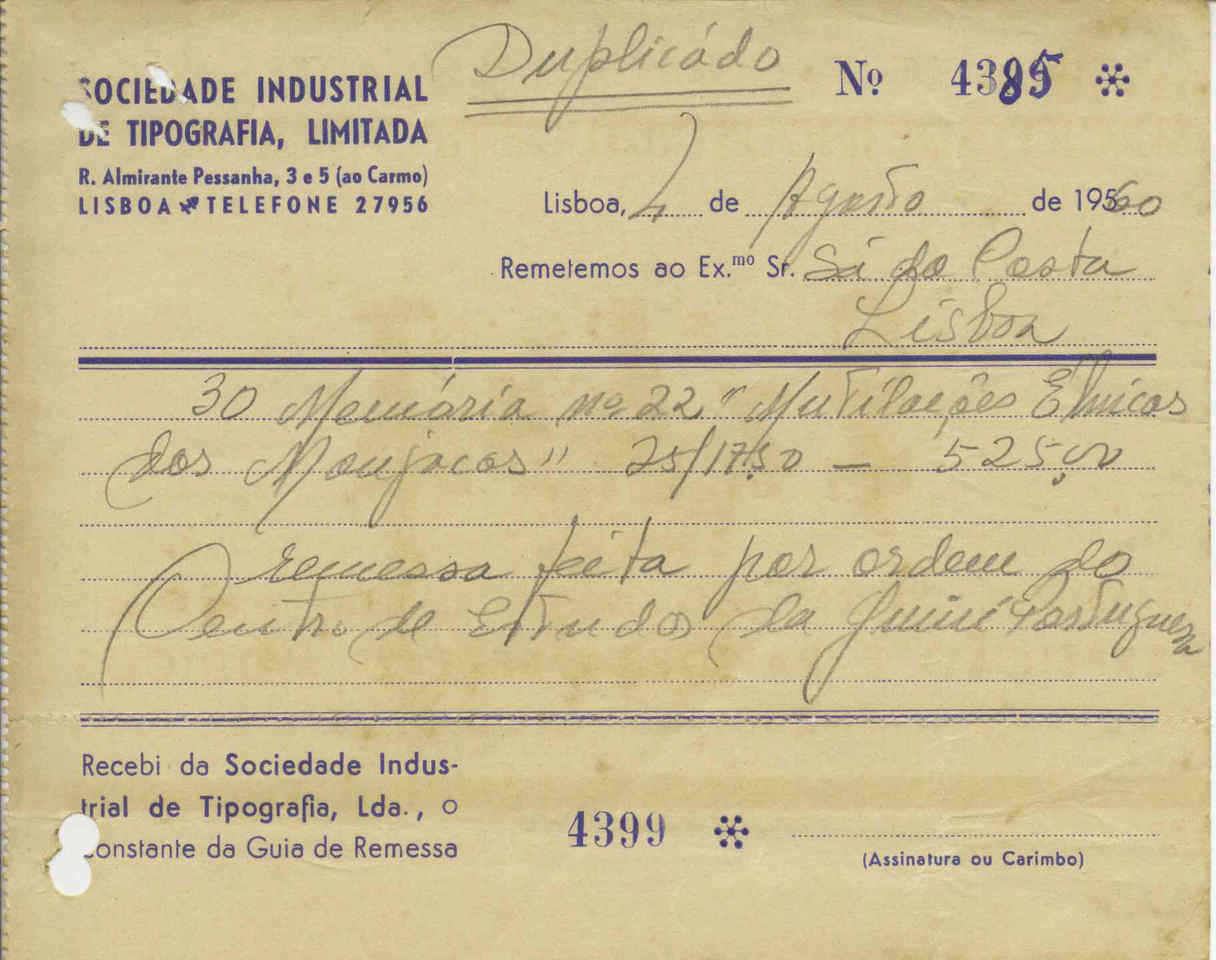 Duplicádo
SOCIEDADE INDUSTRIAL
DE TIPOGRAFIA, LIMITADA
R. Almirante Pessanha, 3 e 5 (ao Carmo)
LISBOA TELEFONE 27956
Nº 4385
Lisboa, 4 de Agosto de 1960
Remetemos ao Ex.mo Sr. Sá da Costa
Lisboa
30 Memória nº 22 "Mutilações Etnicas
dos Manjacos" 25/17$50 — 525,00
remessa feita por ordem do
Centro de Estudos da Guiné Portuguesa
Recebi da Sociedade Indus-
trial de Tipografia, Lda., o
constante da Guia de Remessa
4399
(Assinatura ou Carimbo)